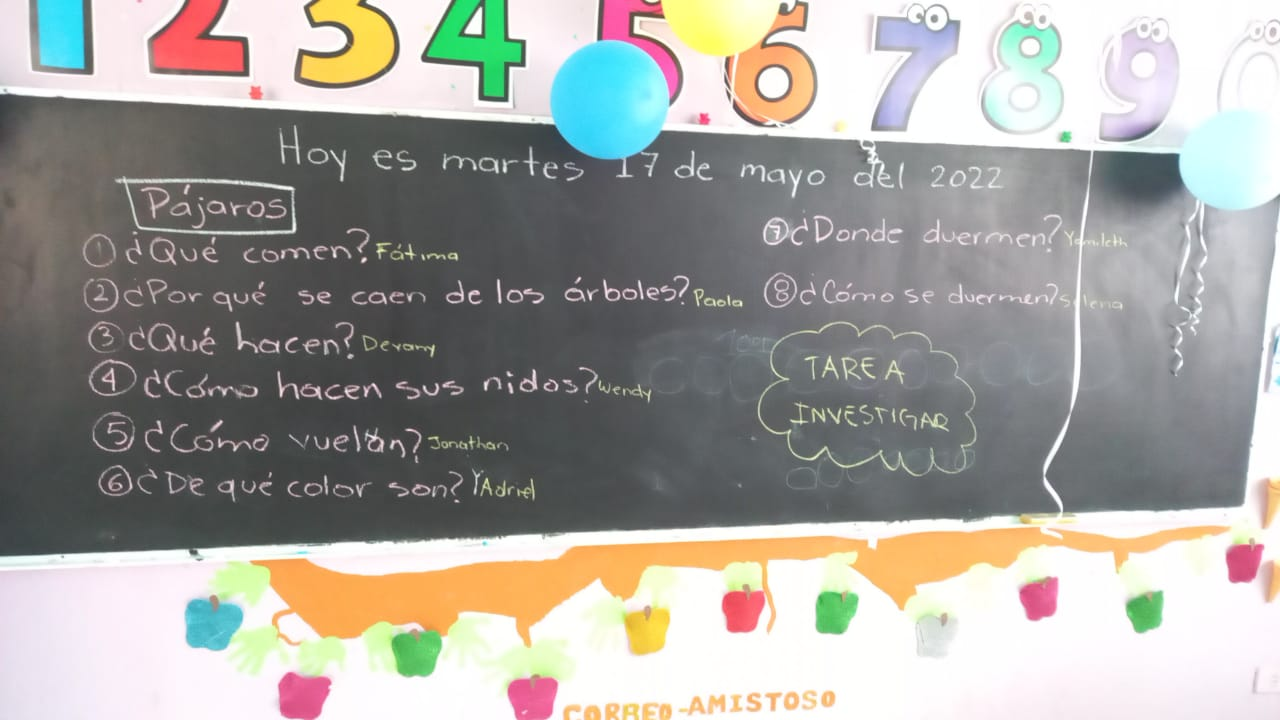 1 2 3 4 5 6 7 8 9 0
Hoy es martes 17 de mayo del 2022
Pájaros
① ¿Qué comen? Fátima
② ¿Por qué se caen de los árboles? Paola
③ ¿Qué hacen? Devany
④ ¿Cómo hacen sus nidos? Wendy
⑤ ¿Cómo vuelan? Jonathan
⑥ ¿De qué color son? Y Adriel
⑦ ¿Donde duermen? Yamileth
⑧ ¿Cómo se duermen? Selena
TAREA
INVESTIGAR
CORREO-AMISTOSO